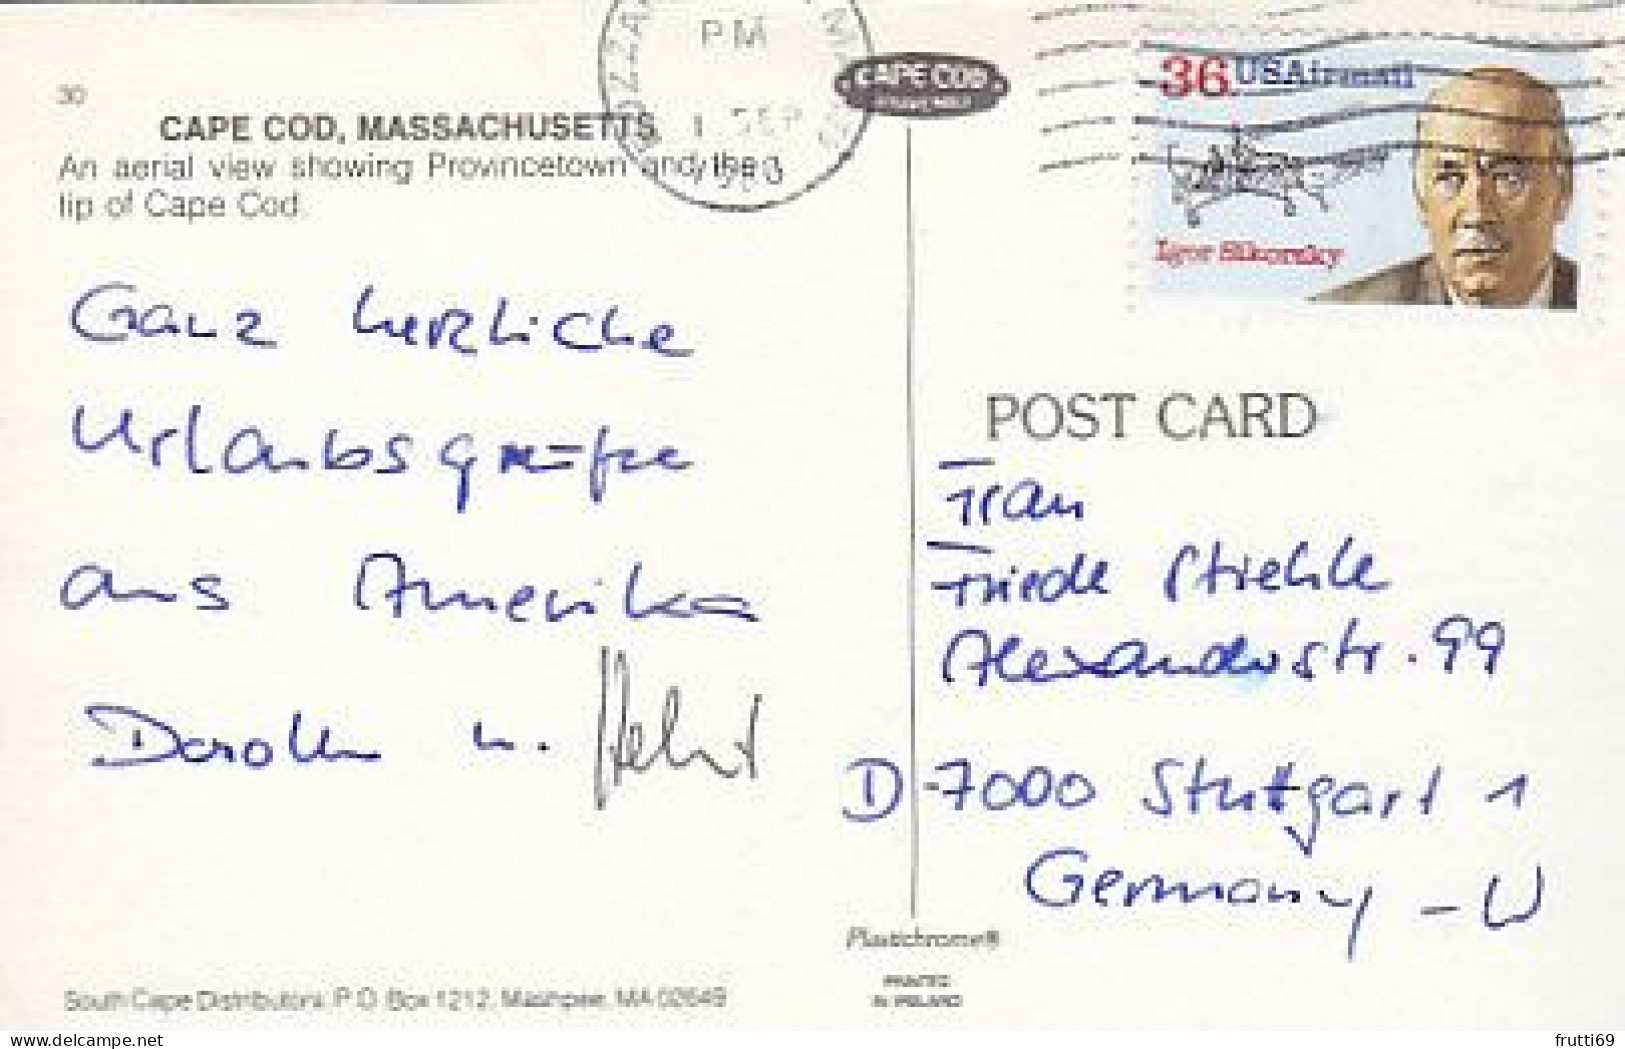 30
CAPE COD, MASSACHUSETTS
An aerial view showing Provincetown and the
tip of Cape Cod.
PM
SEP
CAPE COD
36 USAirmail
Igor Sikorsky
Ganz herzliche
Urlaubsgrüße
aus Amerika
Dorothee u. Helmut
POST CARD
Frau
Friedl Strehle
Alexanderstr. 99
D-7000 Stuttgart 1
Germany - W
Plastichrome®
PRINTED
IN IRELAND
South Cape Distributors, P.O. Box 1212, Mashpee, MA 02649
www.delcampe.net
frutti69